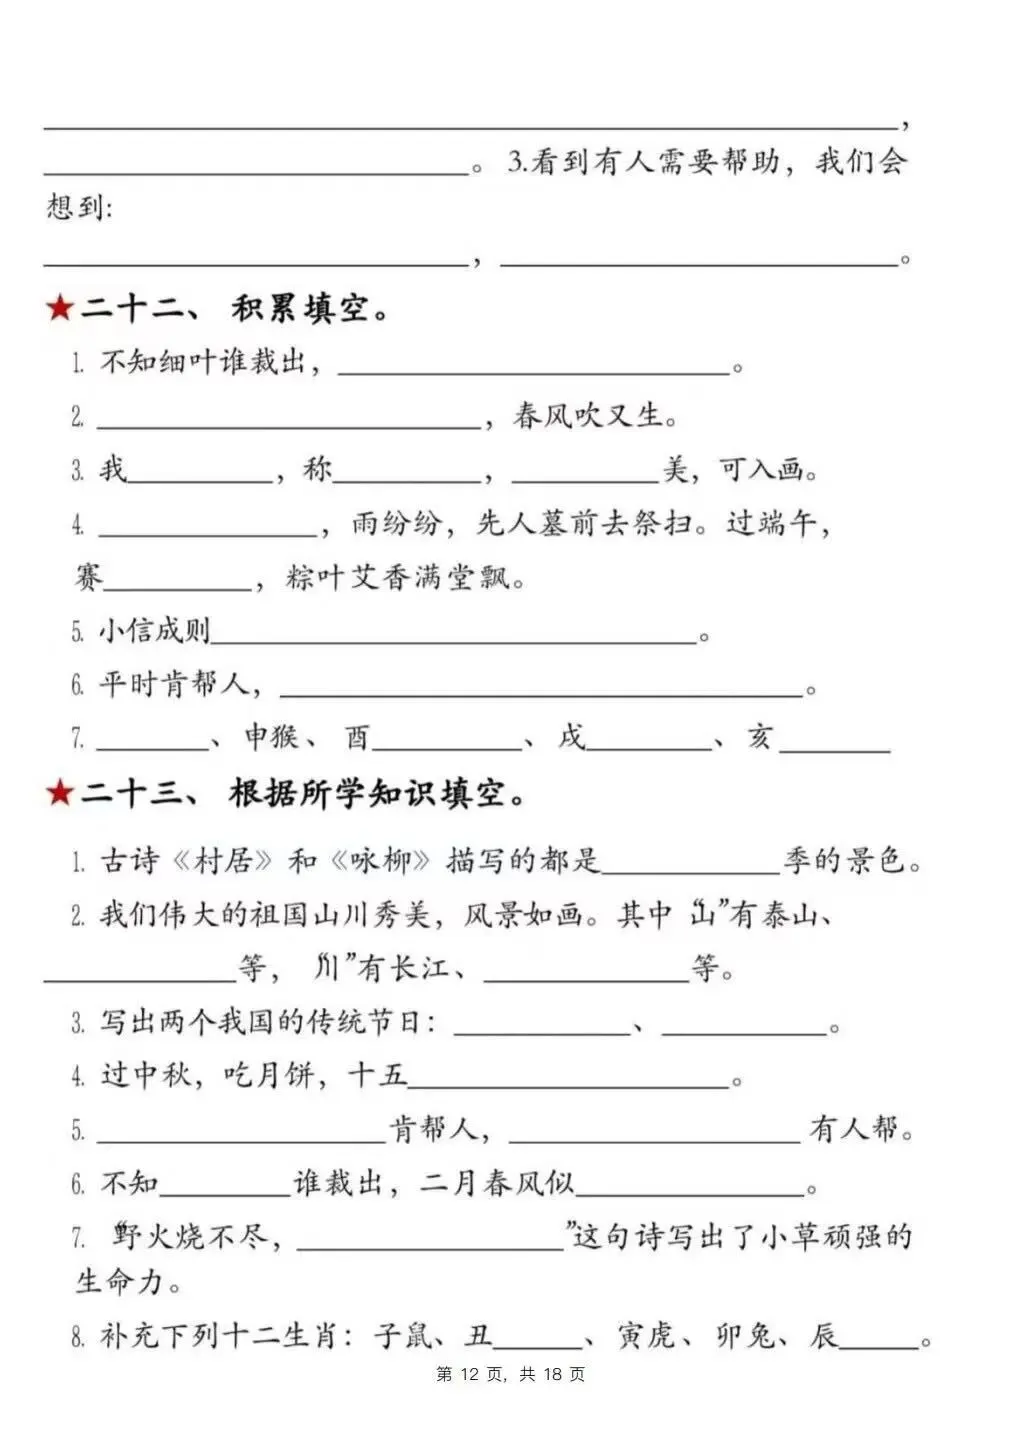 ____________________________，
______________。 3.看到有人需要帮助，我们会
想到:
______________，______________。
★二十二、 积累填空。
1. 不知细叶谁裁出，______________。
2. ______________，春风吹又生。
3. 我______，称______，______美，可入画。
4. ________，雨纷纷，先人墓前去祭扫。过端午，
赛______，粽叶艾香满堂飘。
5. 小信成则________________。
6. 平时肯帮人，________________。
7. ____、申猴、 酉______、戌____、亥____
★二十三、 根据所学知识填空。
1. 古诗《村居》和《咏柳》描写的都是______季的景色。
2. 我们伟大的祖国山川秀美，风景如画。其中 “山”有泰山、
______等， “川”有长江、______等。
3. 写出两个我国的传统节日：______、______。
4. 过中秋，吃月饼，十五__________。
5. __________肯帮人，__________有人帮。
6. 不知____谁裁出，二月春风似________。
7. “野火烧不尽，________”这句诗写出了小草顽强的
生命力。
8. 补充下列十二生肖：子鼠、丑____、寅虎、卯兔、辰____。
第 12 页，共 18 页